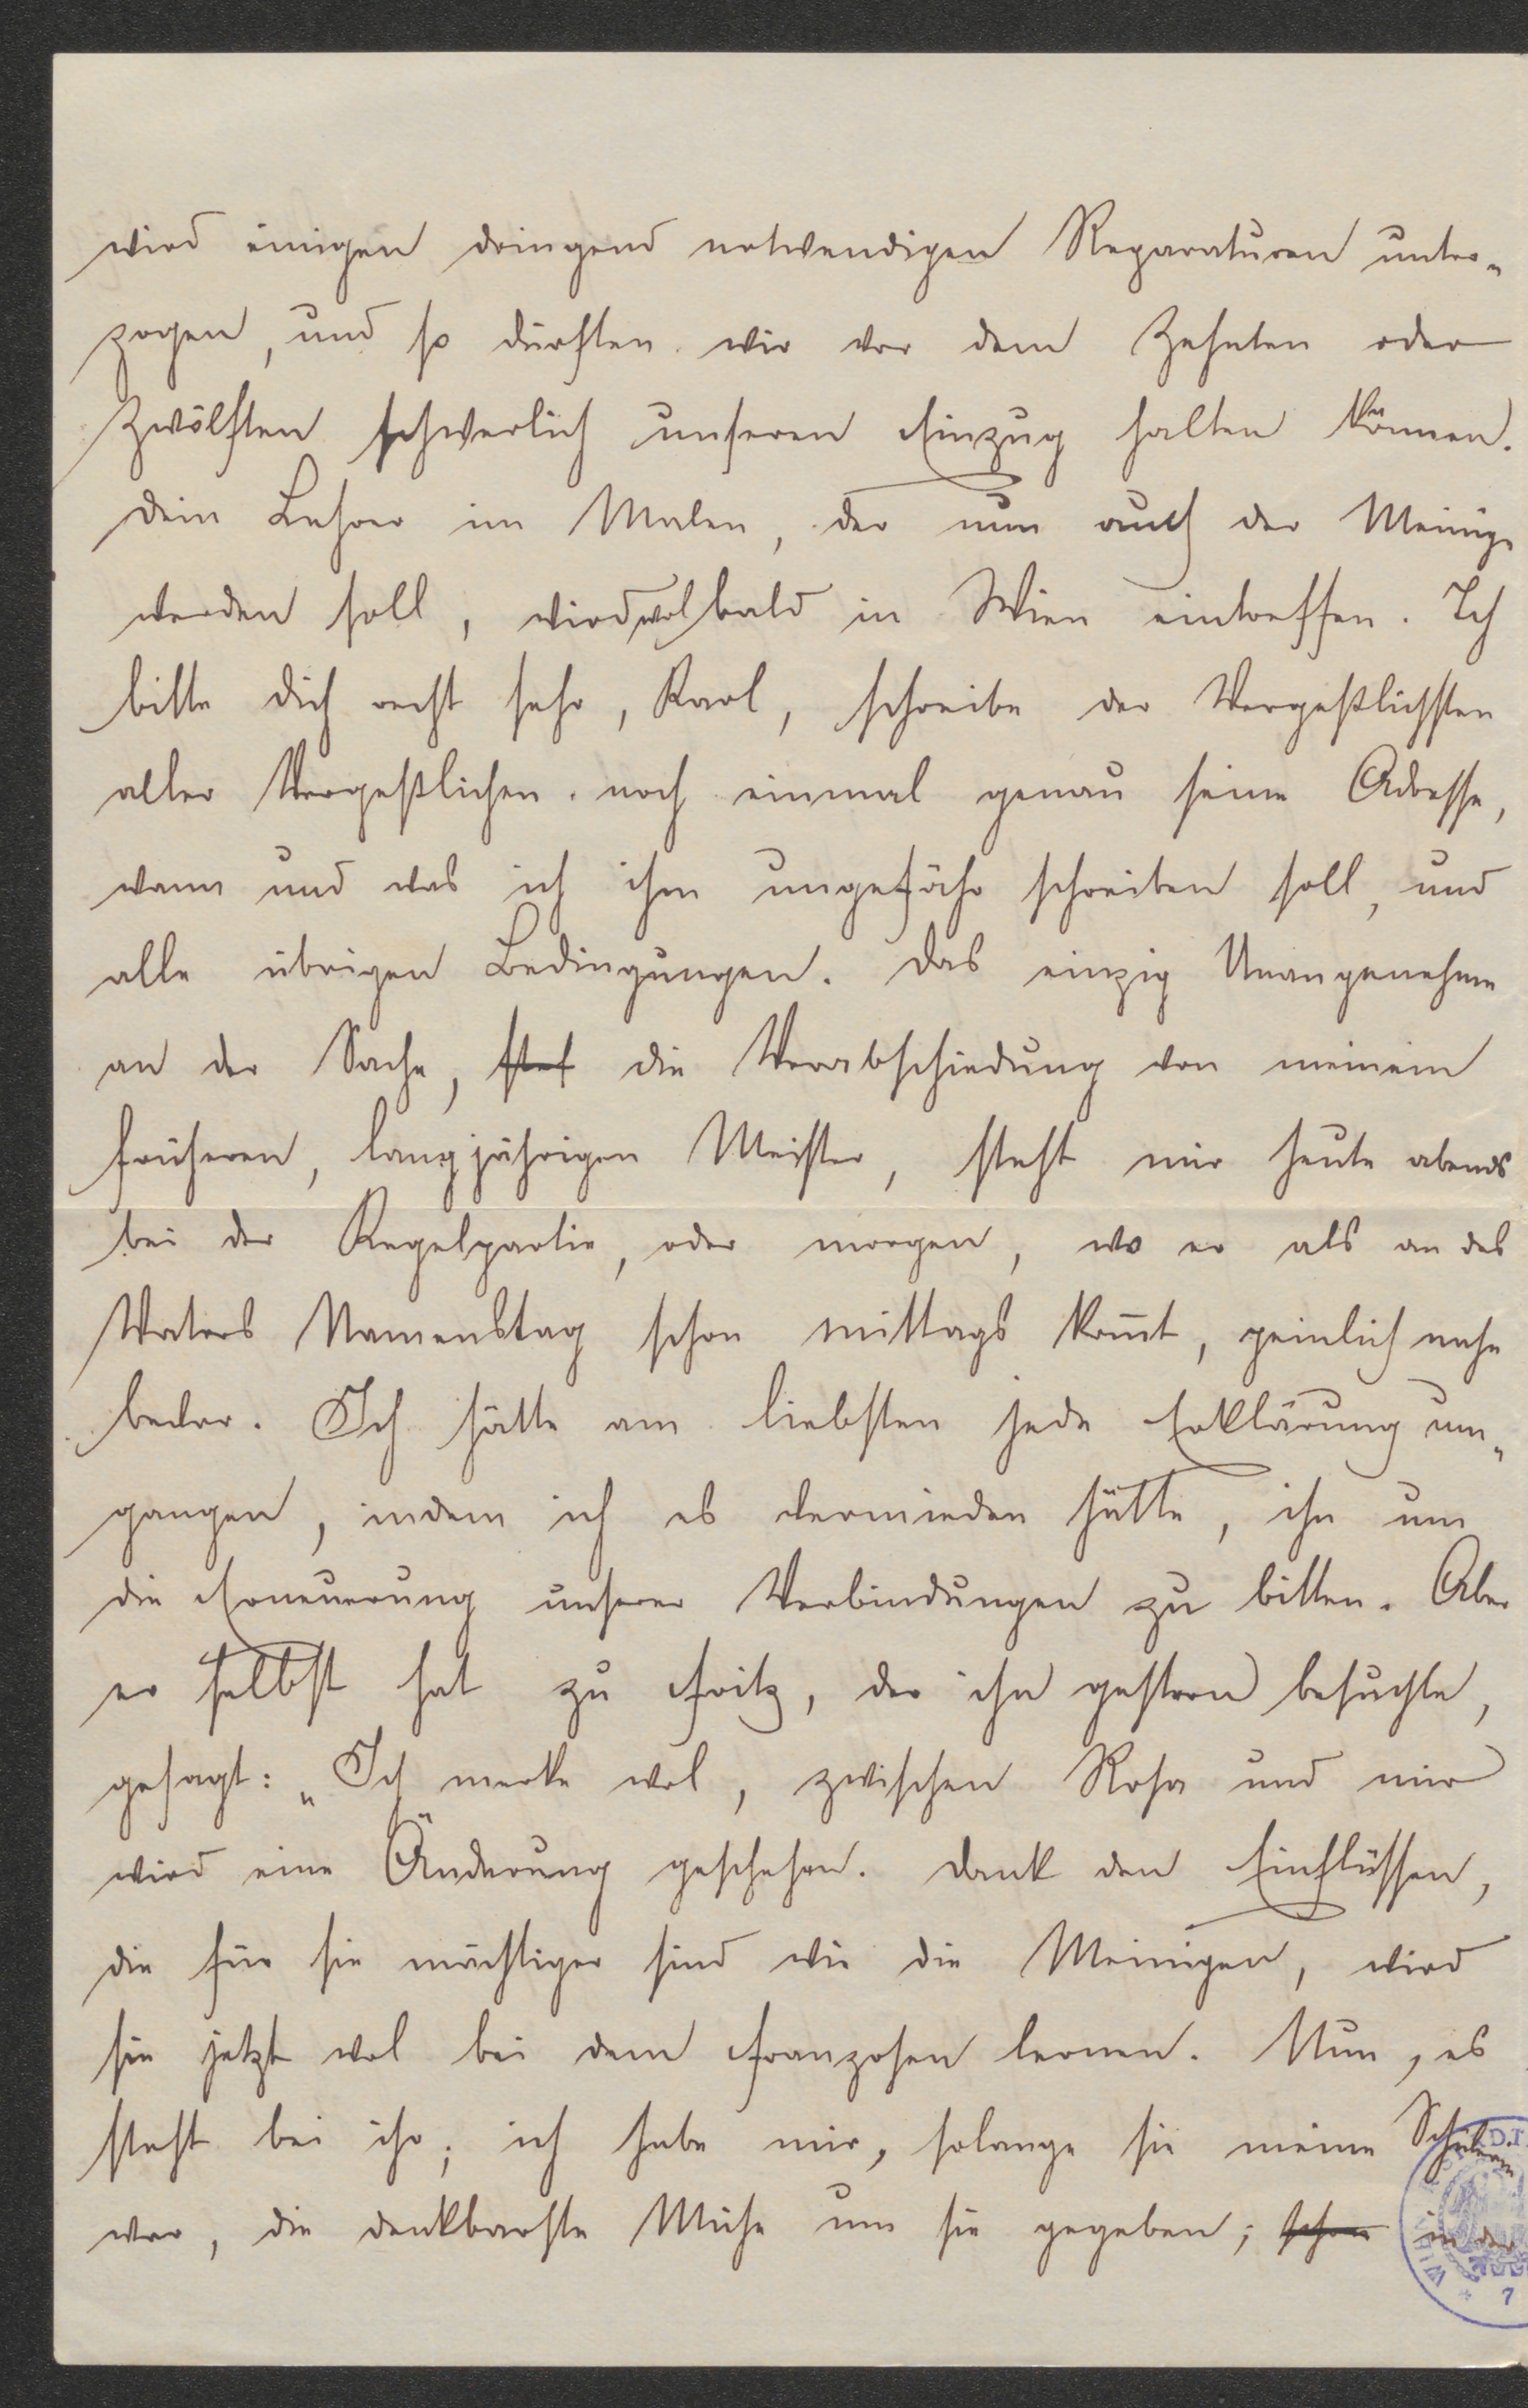 wird einigen dringend notwendigen Reparaturen unter-
zogen, und so dürften wir vor dem Zehnten oder
Zwölften schwerlich unseren Einzug halten können.
Dein Lehrer im Malen, der nun auch der Meinige
werden soll, wird wol bald in Wien eintreffen. Ich
bitte Dich recht sehr, Karl, schreibe der Vergeßlichsten
aller Vergeßlichen noch einmal genau seine Adresse,
wann und was ich ihm ungefähr schreiben soll, und
alle übrigen Bedingungen. Das einzig Unangenehme
an der Sache, steh die Verabschiedung von meinem
früheren, langjährigen Meister, steht mir heute abends
bei der Kegelpartie, oder morgen, wo er als an des
Vaters Namenstag schon mittags kom̅t, peinlich nahe
bevor. Ich hätte am liebsten jede Erklärung um-
gangen, indem ich es vermieden hätte, ihn um
die Erneuerung unserer Verbindungen zu bitten. Aber
er selbst hat zu Fritz, der ihn gestern besuchte,
gesagt: „Ich merke wol, zwischen Rosa und mir
wird eine Änderung geschehen. Dank den Einflüssen,
die für sie mächtiger sind wie die Meinigen, wird
sie jetzt wol bei dem Franzosen lernen. Nun, es
steht bei ihr; ich habe mir, solange sie meine Schülerin
war, die denkbarste Mühe um sie gegeben; schon in der
WIEN
7